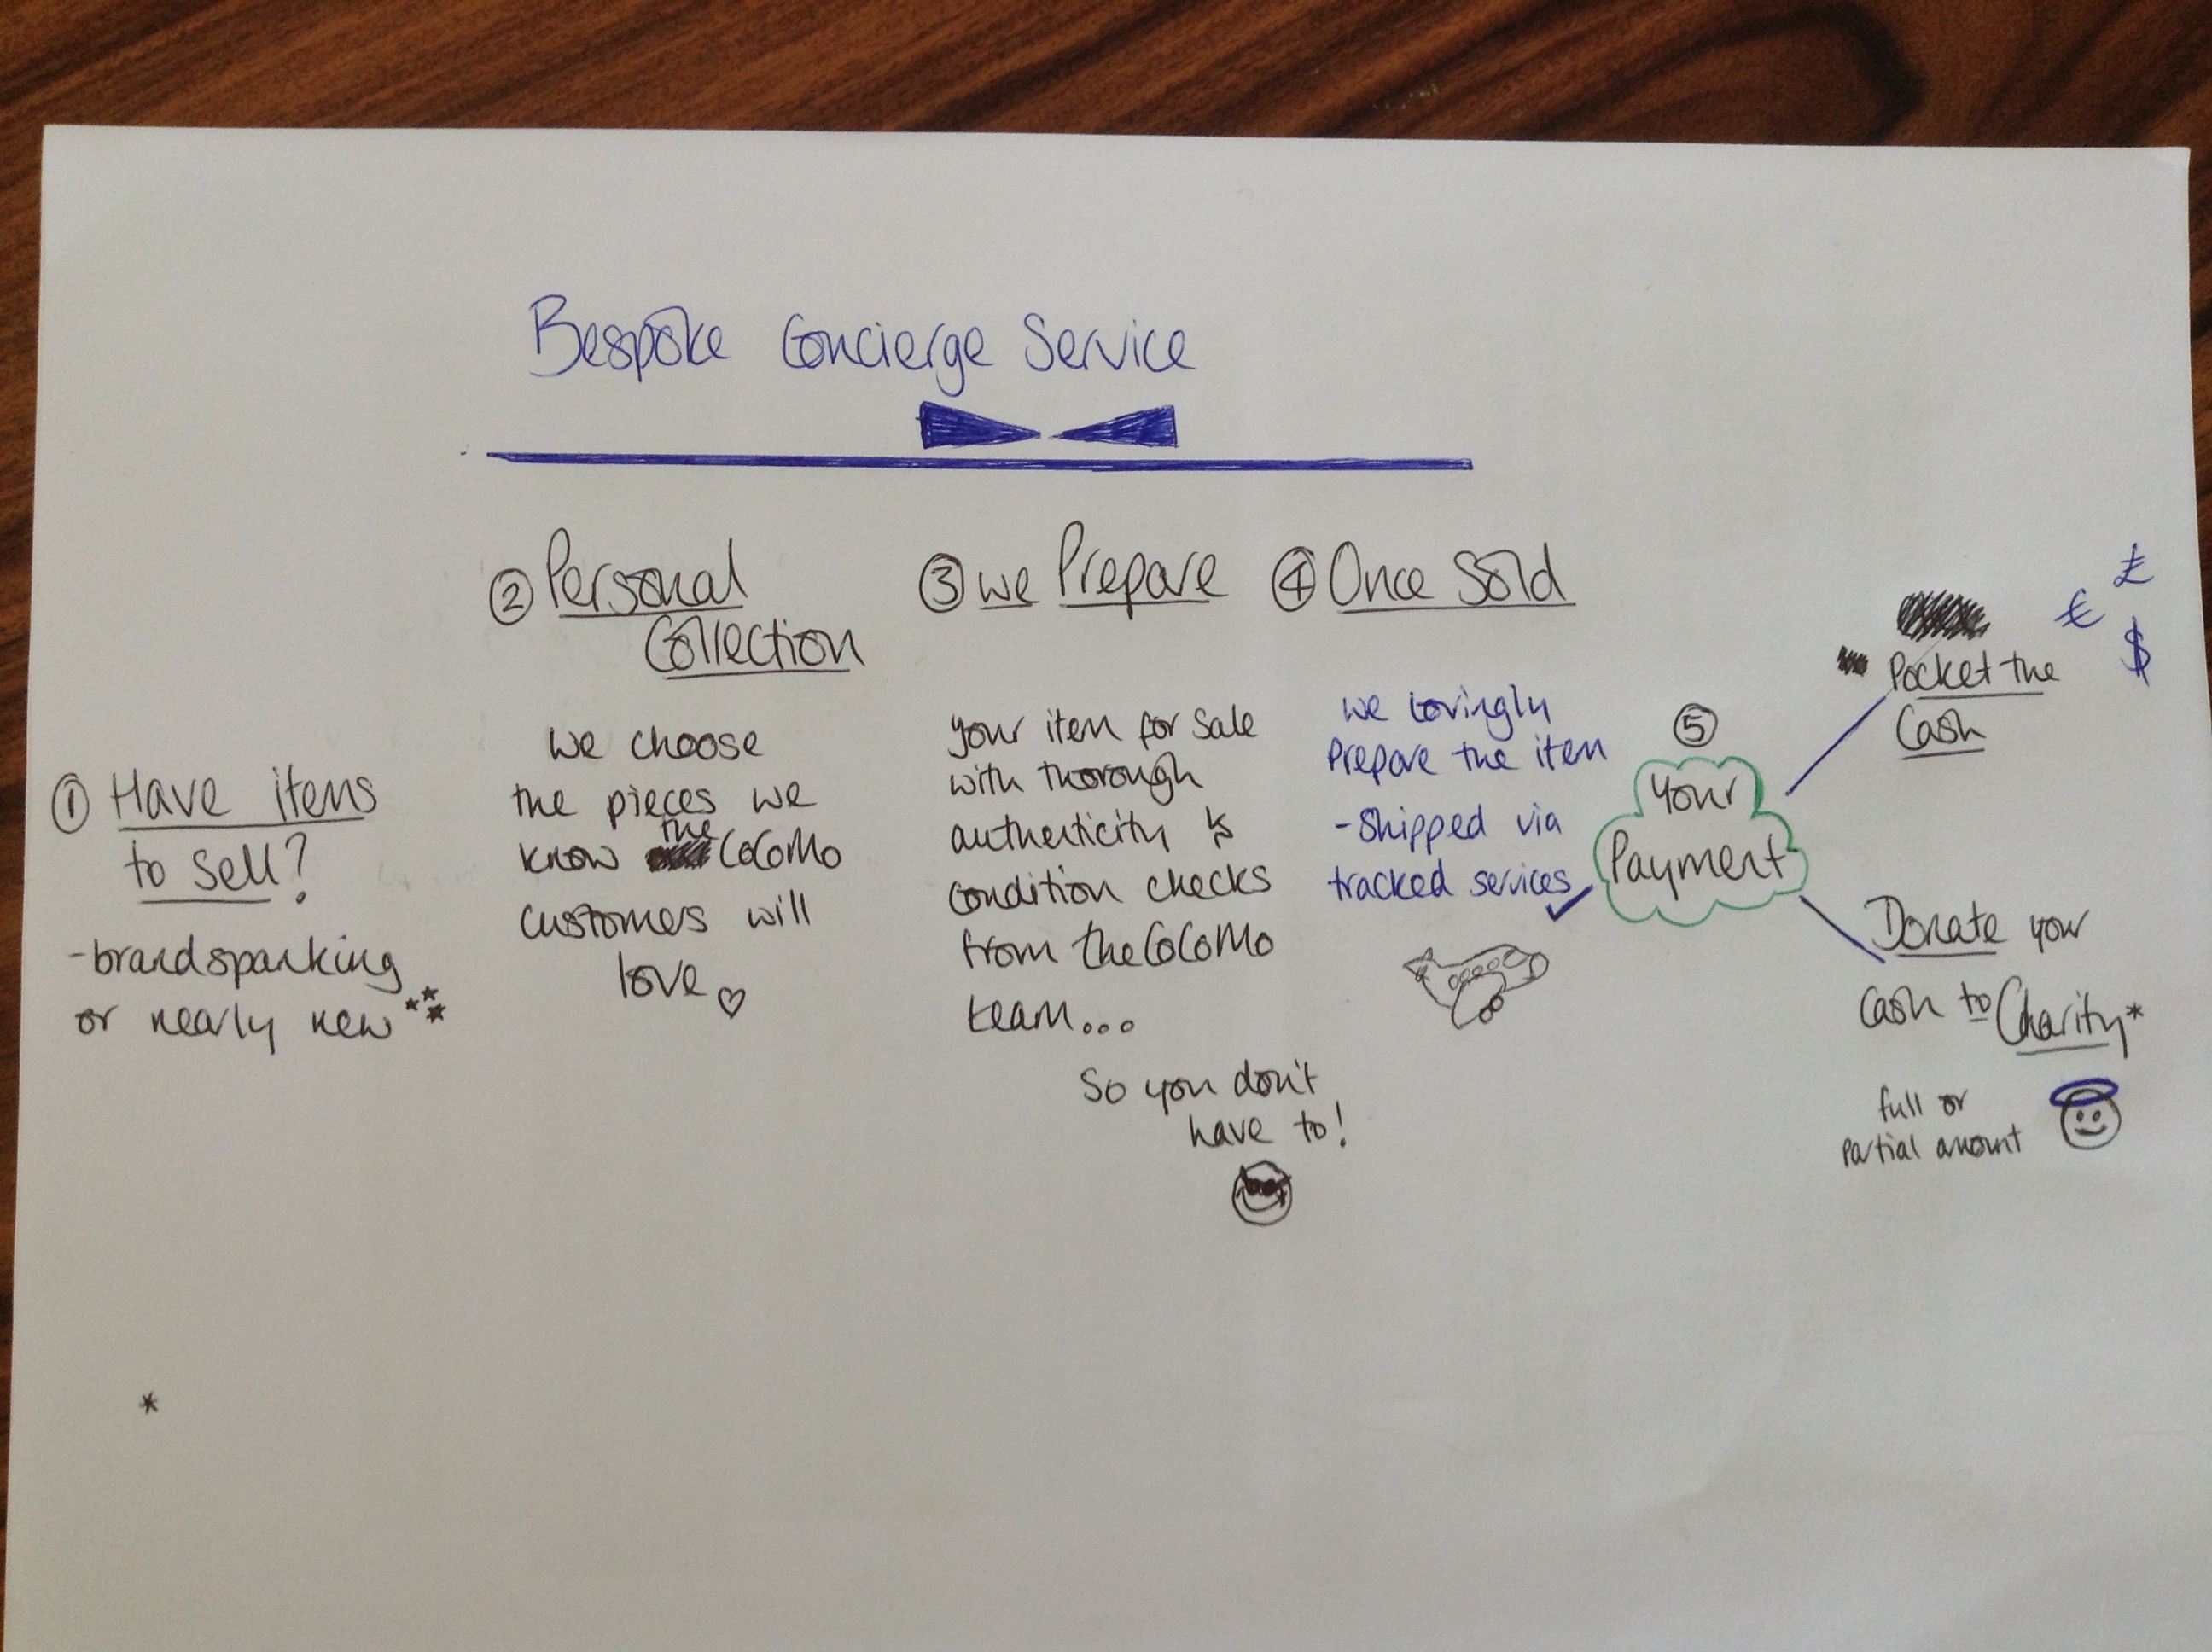 Bespoke Concierge Service
① Have items
to sell?
-brandspanking
or nearly new
② Personal
Collection
we choose
the pieces we
know the CoCoMo
customers will
love ♡
③ we Prepare
your item for sale
with thorough
authenticity &
condition checks
from theCoCoMo
team...
So you don't
have to!
④ Once Sold
we lovingly
Prepare the item
-shipped via
tracked services
⑤
Your
Payment
£
€
$
Pocket the
Cash
Donate your
Cash to Charity*
full or
partial amount
*